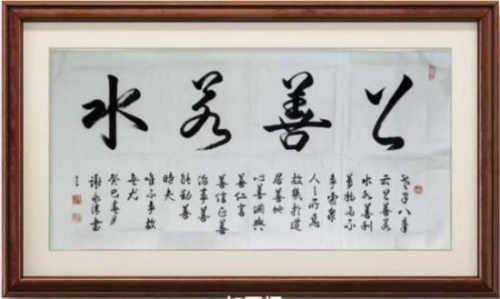 上善若水
老子八章
云上善若
水水善利
萬物而不
争處衆
人之所惡
故幾於道
居善地
心善淵與
善仁言
善信正善
治事善
能動善
時夫
唯不争故
無尤
癸巳春月